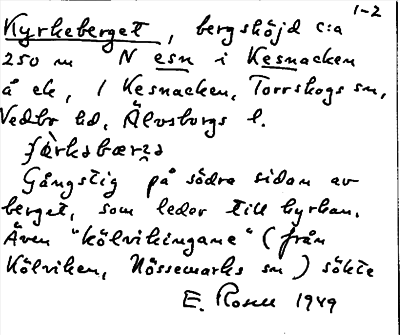 1-2
Kyrkeberget, bergshöjd c:a
250 m N esn i Kesnacken
å ek, 1 Kesnacken, Torrskogs sn,
Vedbo hd, Älvsborgs l.
Gångstig på södra sidan av
berget, som leder till kyrkan.
Även "kölvikingane" (från
Kölviken, Nössemarks sn) sökte
E. Rosell 1949